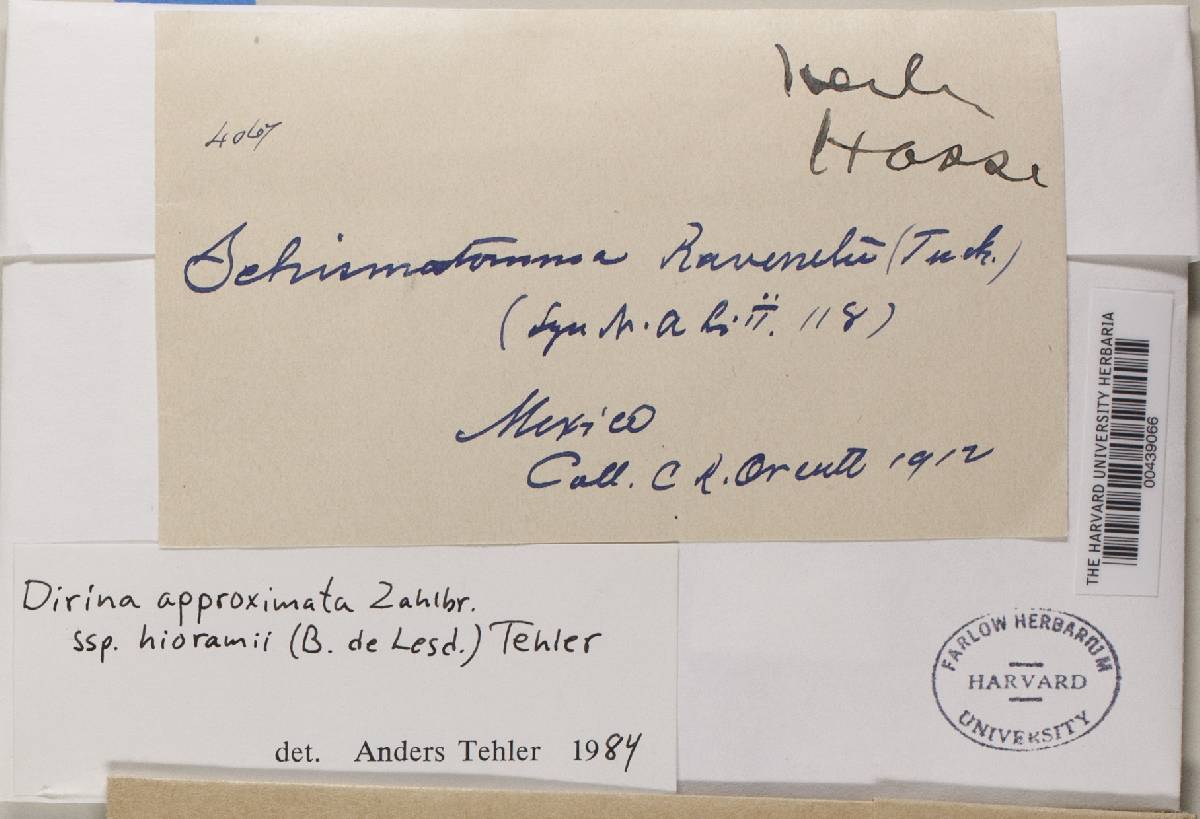 Herb.
Hasse
4067
Schismatomma Ravenelii (Tuck.)
(Syn N. A Li ii. 118)
Mexico
Coll. C R. Orcutt 1912
THE HARVARD UNIVERSITY HERBARIA
00439066
Dirina approximata Zahlbr.
ssp. hioramii (B. de Lesd.) Tehler
det. Anders Tehler 1984
FARLOW HERBARIUM
HARVARD
UNIVERSITY